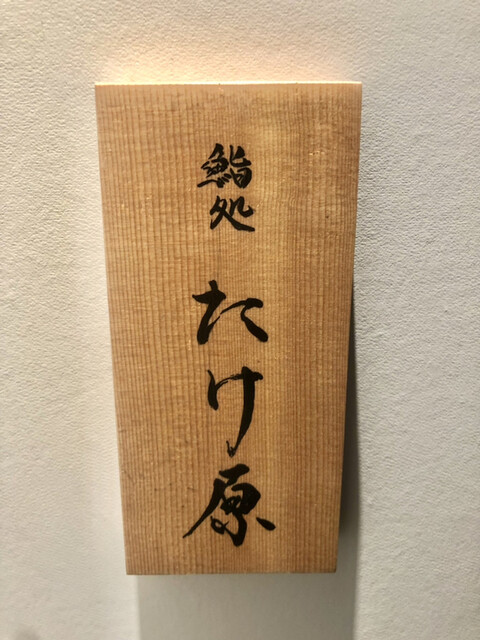 鮨処
たけ原